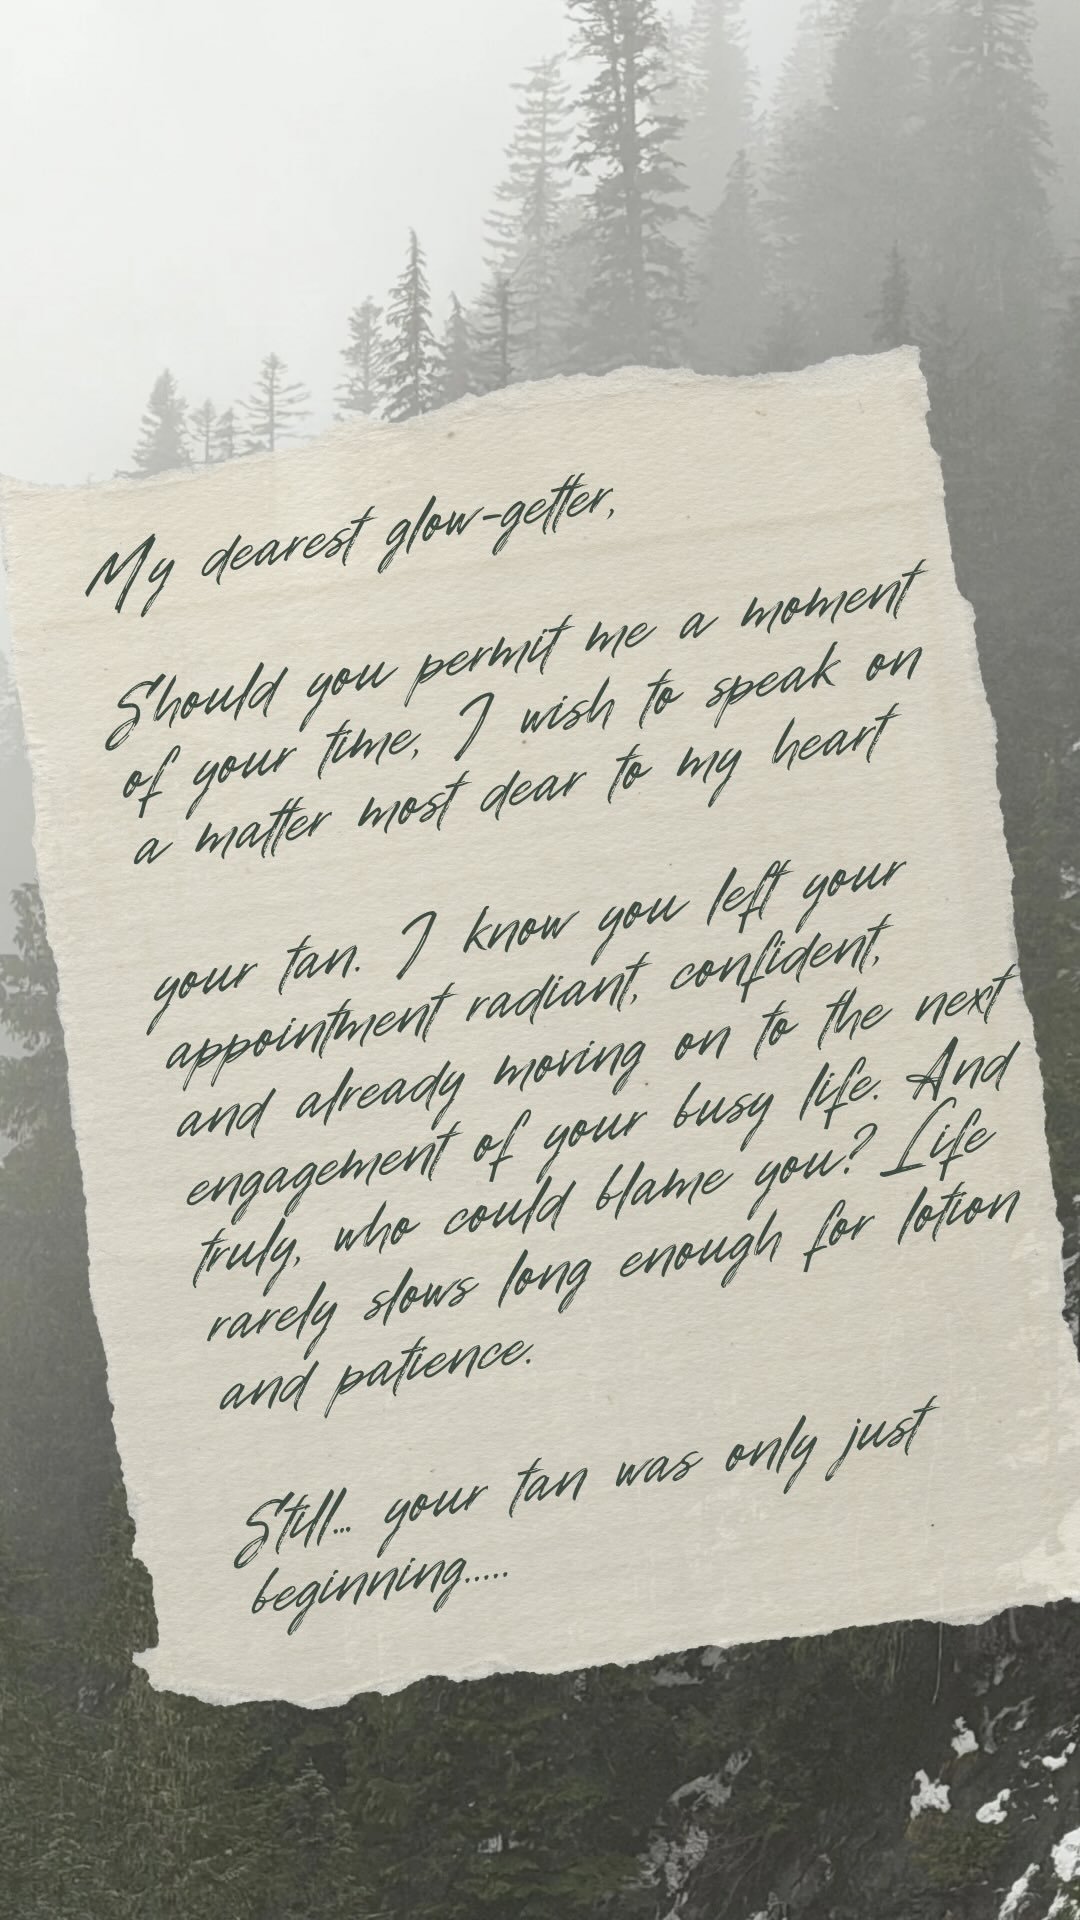 My dearest glow-getter,
Should you permit me a moment
of your time, I wish to speak on
a matter most dear to my heart
your tan. I know you left your
appointment radiant, confident,
and already moving on to the next
engagement of your busy life. And
truly, who could blame you? Life
rarely slows long enough for lotion
and patience.
Still... your tan was only just
beginning.....